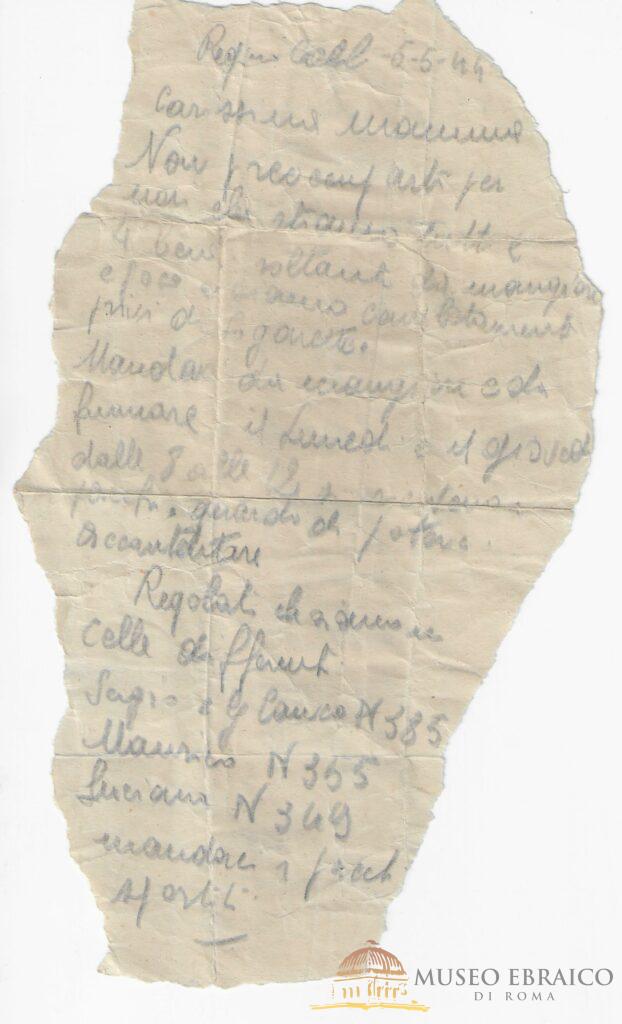 Regina Coeli 5-5-44
Carissima Mamma
Non preoccuparti per
noi che stiamo tutti e
4 bene soltanto da mangiare
e poco e siamo completamente
privi di sigarette.
Mandaci da mangiare e da
fumare il Lunedi e il giovedi
dalle 8 alle 12
guarda di poterci
accontentare
Regolati che siamo in
celle different
Sergio e Glauco N 385
Maurizio N 355
Luciano N 349
mandaci i pacchi
spartiti.
MUSEO EBRAICO
DI ROMA